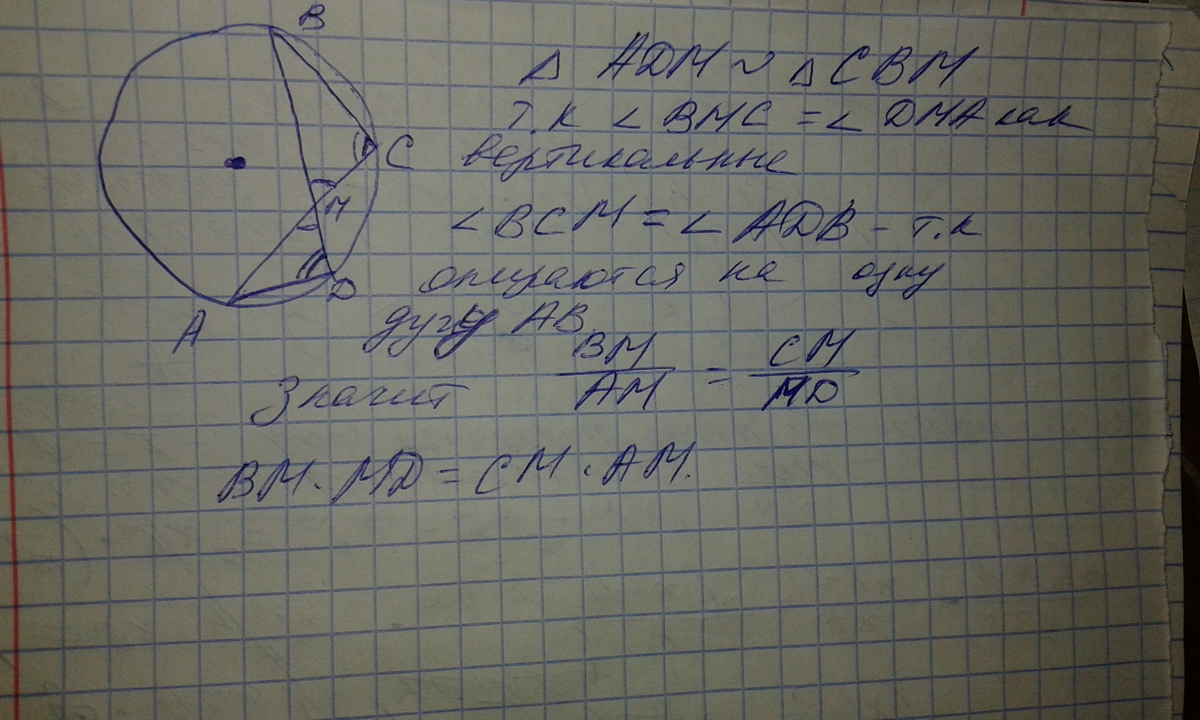 B
C
M
D
A
Δ ADM ~ Δ CBM
т.к ∠ BMC = ∠ DMA как
вертикальные
∠ BCM = ∠ ADB - т.к
опираются на одну
дугу AB.
Значит BM/AM = CM/MD
BM · MD = CM · AM.